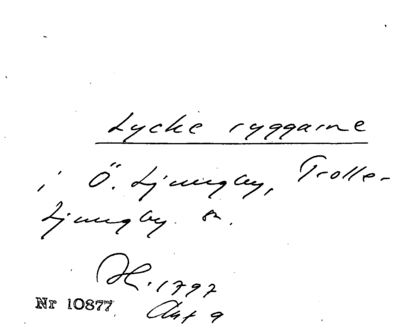 Lycke ryggarne
i Ö. Ljungby, Trolle-
Ljungby sn.
H. 1797
Nr 10877